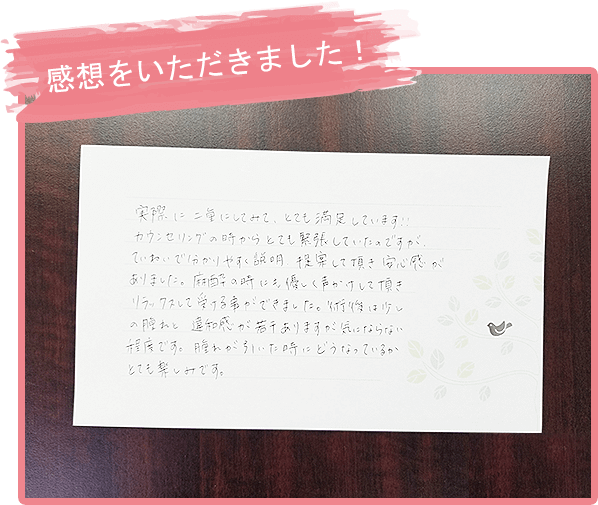 感想をいただきました！
実際に二重にしてみて、とても満足しています!!
カウンセリングの時からとても緊張していたのですが、
ていねいで分かりやすく説明、提案して頂き安心感が
ありました。麻酔の時にも優しく声かけして頂き
リラックスして受ける事ができました。術後は少し
の腫れと違和感が若干ありますが気にならない
程度です。腫れが引いた時にどうなっているか
とても楽しみです。